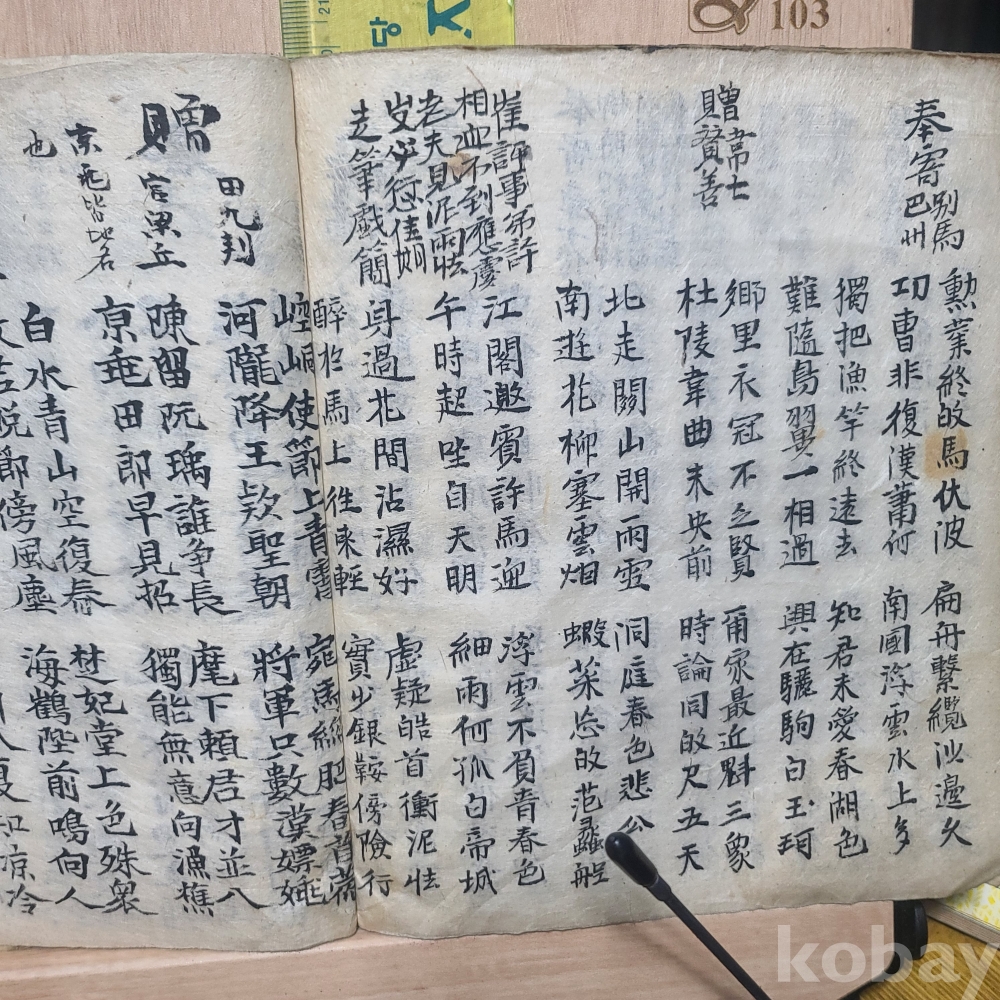 奉寄別馬
巴州
勲業終敀馬伏波
功曹非復漢蕭何
扁舟繫纜沙邊久
南國浮雲水上多
獨把漁竿終遠去
難隨鳥翼一相過
知君未愛春湖色
興在驪駒白玉珂
贈韋七
贊善
鄉里衣冠不乏賢
杜陵韋曲未央前
爾家最近魁三象
時論同敀尺五天
北走關山開雨雪
南遊花柳塞雲烟
洞庭春色悲公
蝦菜忘敀范蠡船
崔評事弟許
相迎不到應慮
老夫見泥雨怯
出必愆佳期
走筆戲簡
江閣邀賓許馬迎
午時起坐自天明
浮雲不負青春色
細雨何孤白帝城
身過花間沾濕好
醉於馬上往來輕
虛疑皓首衝泥怯
實少銀鞍傍險行
贈
田九判
官梁丘
京兆皆地名
也
崆峒使節上青霄
河隴降王欵聖朝
宛馬總肥春苜蓿
將軍只數漢嫖姚
陳留阮瑀誰爭長
京兆田郎早見招
麾下賴君才並入
獨能無意向漁樵
白水青山空復春
君晚節傍風塵
楚妃堂上色殊衆
海鶴階前鳴向人
103
kobay